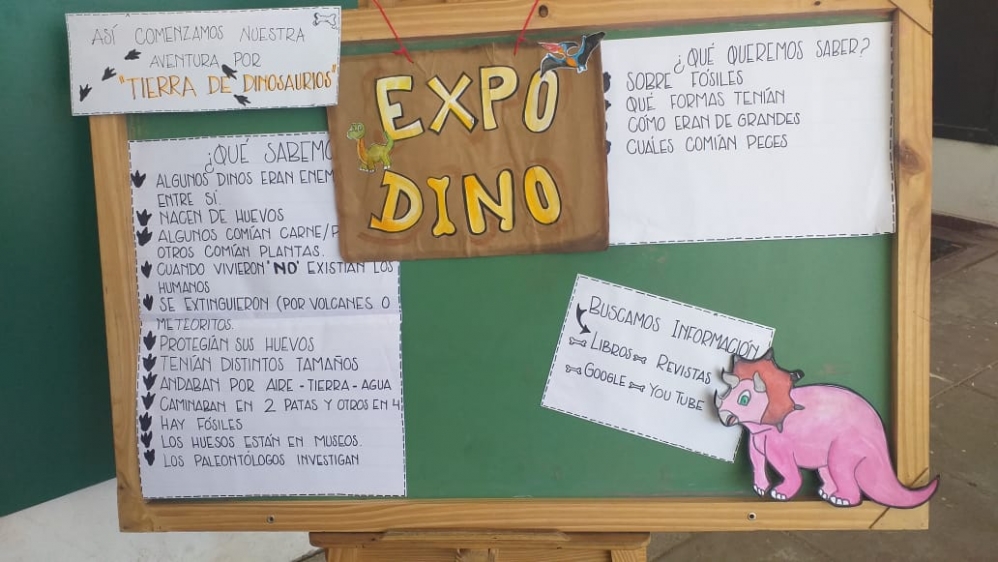 ASÍ COMENZAMOS NUESTRA
AVENTURA POR
"TIERRA DE DINOSAURIOS"
EXPO
DINO
¿QUÉ SABEMO
ALGUNOS DINOS ERAN ENEM
ENTRE SÍ.
NACEN DE HUEVOS
ALGUNOS COMÍAN CARNE/P
OTROS COMÍAN PLANTAS.
CUANDO VIVIERON "NO" EXISTÍAN LOS
HUMANOS
SE EXTINGUIERON (POR VOLCANES O
METEORITOS.
PROTEGÍAN SUS HUEVOS
TENÍAN DISTINTOS TAMAÑOS
ANDABAN POR AIRE - TIERRA - AGUA
CAMINABAN EN 2 PATAS Y OTROS EN 4
HAY FÓSILES
LOS HUESOS ESTÁN EN MUSEOS.
LOS PALEONTÓLOGOS INVESTIGAN
¿QUÉ QUEREMOS SABER?
SOBRE FÓSILES
QUÉ FORMAS TENÍAN
CÓMO ERAN DE GRANDES
CUALES COMÍAN PECES
BUSCAMOS INFORMACIÓN
LIBROS REVISTAS
GOOGLE YOU TUBE